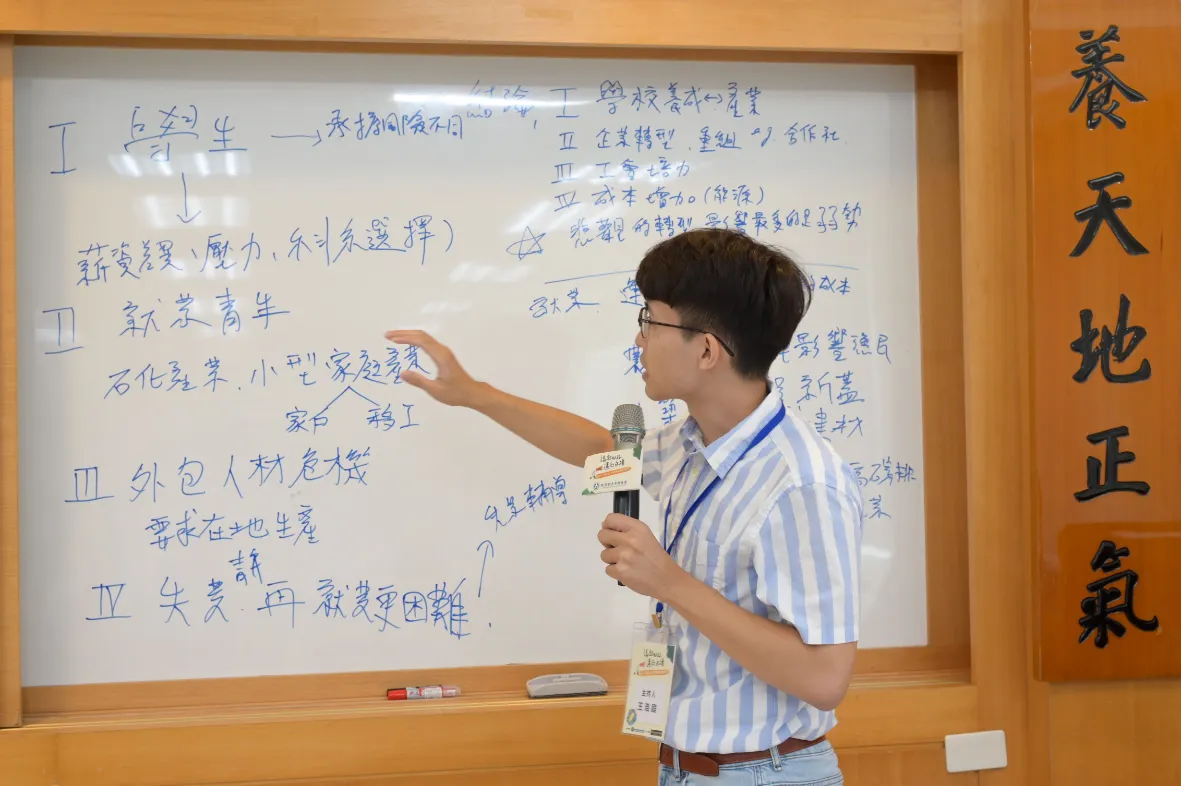 I 生 → 承擔風險不同
薪資差異、壓力、科系選擇)
II 就業青年
石化產業、小型家庭產業
家戶 移工
III 外包人材危機
要求在地生產
IV 失業青年 再就業更困難
結論,
I 學校養成↔產業
II 企業轉型、重組 eg. 合作社.
III 工會培力
IV 成本增加。(能源)
☆ 悲觀的轉型,影響最多的是弱勢
成本
影響漁民
新蓋
建材
高碳排
業
主持人
養天地正氣